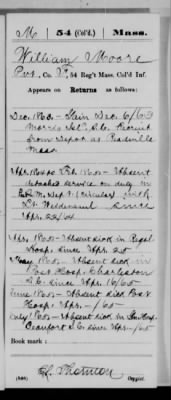 M 54 (Col'd.) Mass.
William Moore
Pvt., Co. 54 Reg't Mass. Col'd Inf.
Appears on
Returns as follows:
Dec. 1863 - Gain Dec. 6/63
Morris Isl. S.C. Recruit
from Depot at Readville
Mass
Absent
detached service on duty in
with
Lt. since
Apr. 22/64
Apr. 1865 - Absent sick in Regtl
Hosp. since Apr.
May 1865 - Absent sick in
Post Hosp. Charleston
S.C. since Apr 16/65
June 1865 - Absent sick Post
Hosp. Apr. - /65
July 1865 - Absent sick in
Beaufort S.C. since Apr. - /65
Book mark:
Copyist.